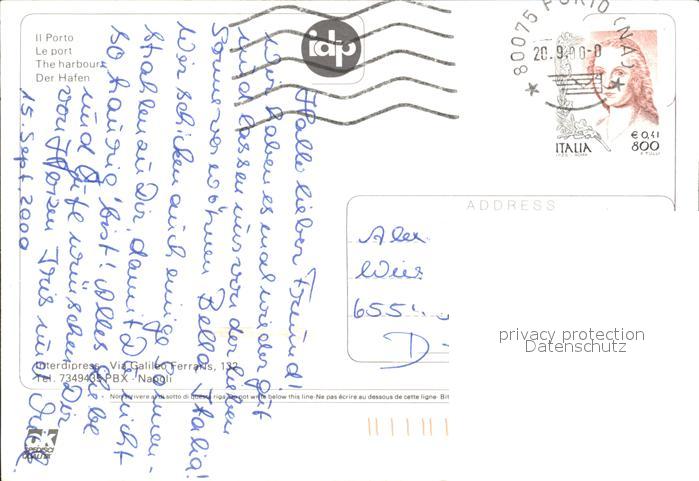 Il Porto
Le port
The harbour
Der Hafen
idp
80075 PORTO (NA)
20.9.00-0
ITALIA
€ 0,41
800
ADDRESS
Alex
655
D-
privacy protection
Datenschutz
Hallo lieber Freund!
Wir haben es mal wieder gut
und lassen uns von der lieben
Sonne verwöhnen Bella Italia!
Wir schicken auch einige Sonnen-
strahlen zu Dir, damit Du nicht
so traurig bist! Alles Liebe
und Gute wünschen Dir
von Herzen Iris und
15. Sept. 2000
Interdipress - Via Galileo Ferraris, 132
Tel. 7349435 PBX - Napoli
Non scrivere al di sotto di questa riga - Do not write below this line - Ne pas écrire au dessous de cette ligne - Bit